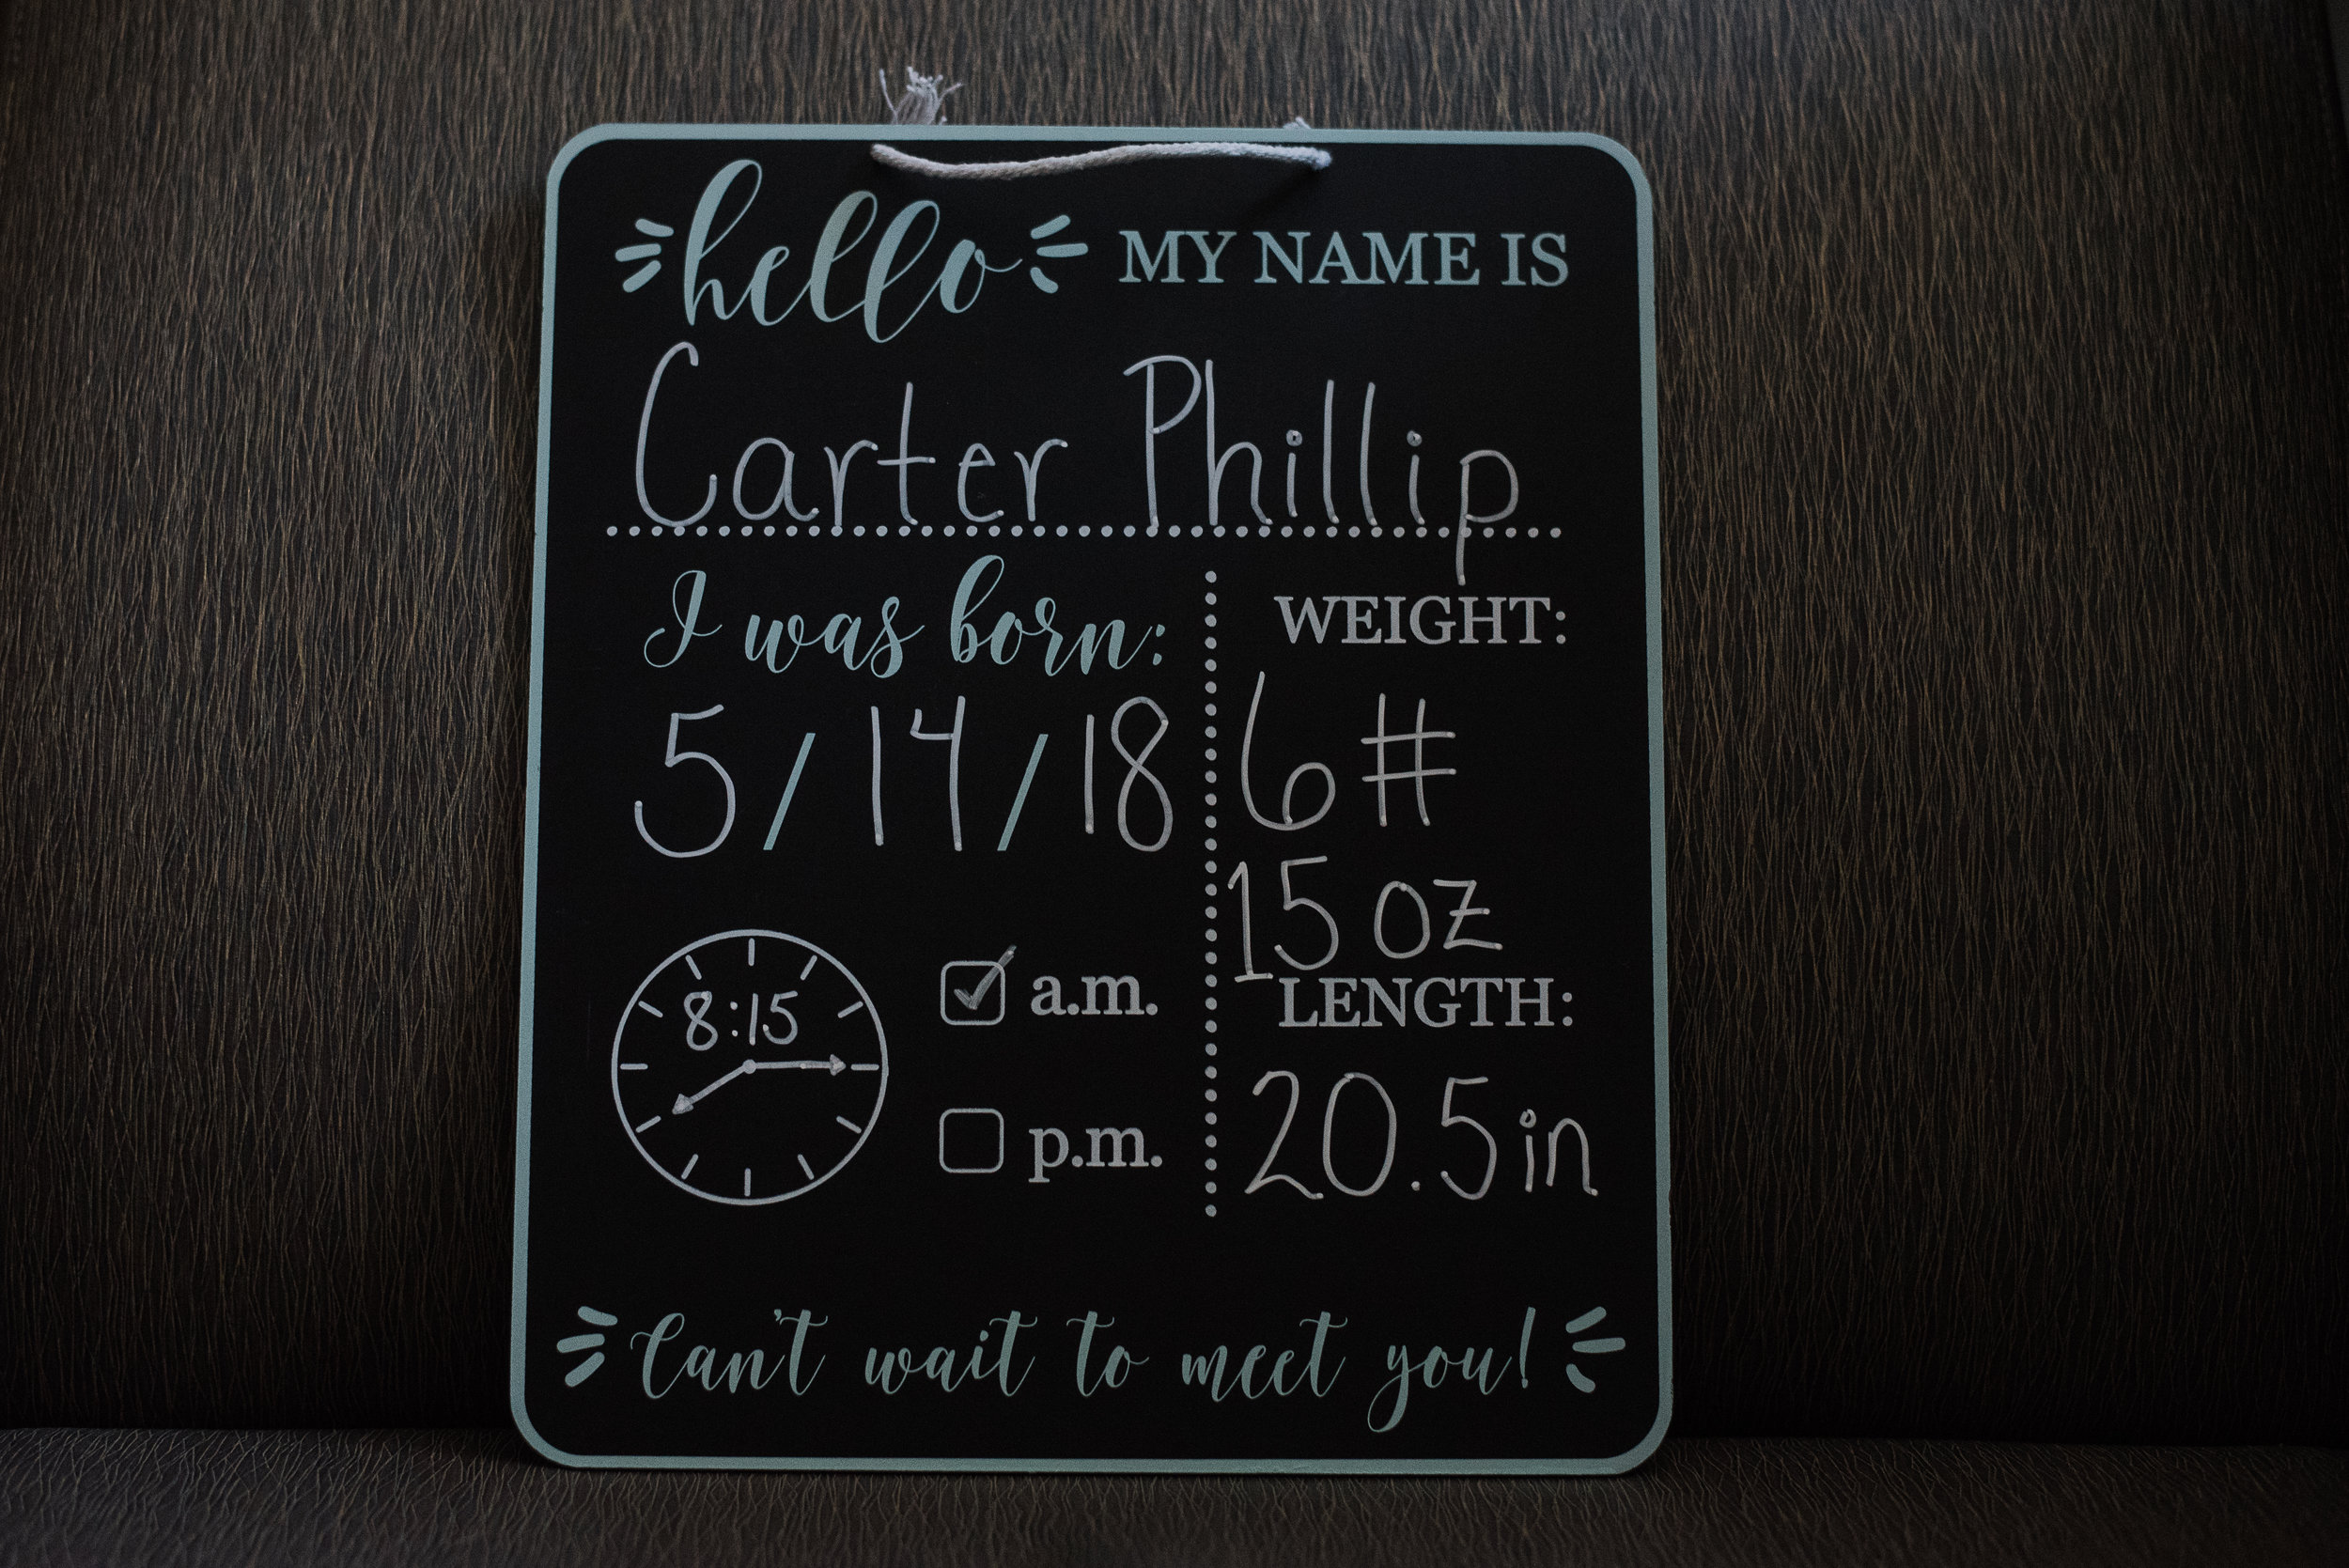 hello MY NAME IS
Carter Phillip
I was born:
5/14/18
8:15
a.m.
p.m.
WEIGHT:
6#
15 oz
LENGTH:
20.5 in
Can't wait to meet you!